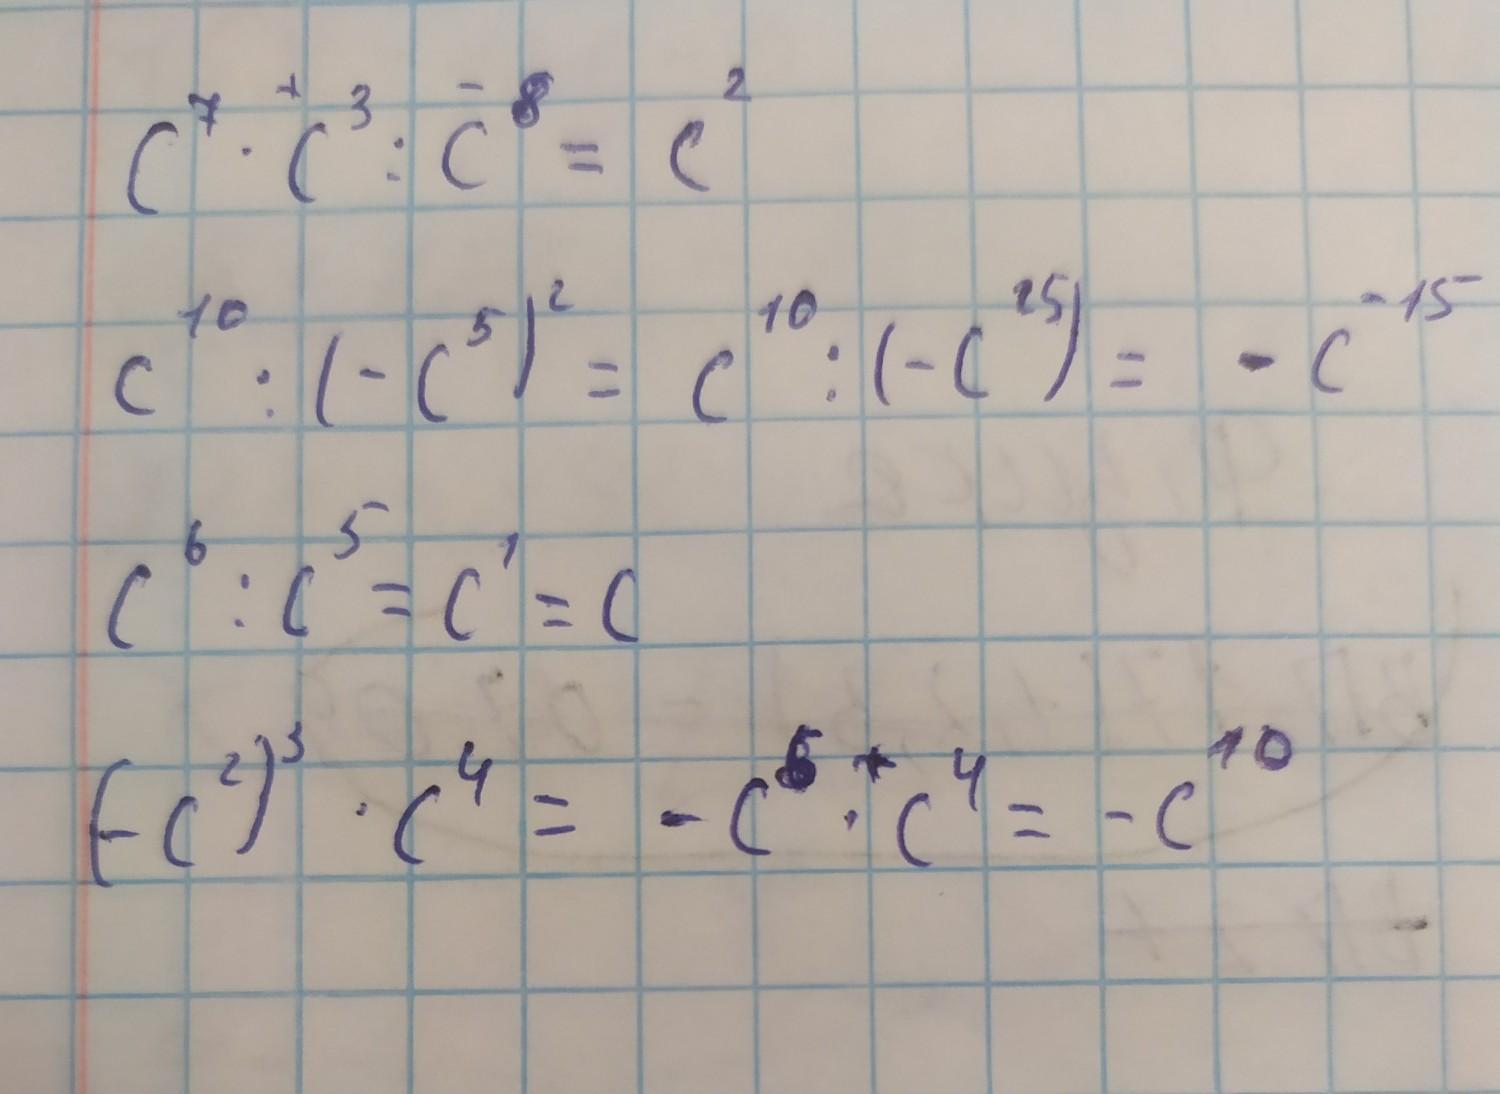 c⁷ · ⁺ c³ : ⁻ c⁸ = c²
c¹⁰ : (-c⁵)² = c¹⁰ : (-c²⁵) = - c⁻¹⁵
c⁶ : c⁵ = c¹ = c
(-c²)³ · c⁴ = -c⁶ · ⁺ c⁴ = -c¹⁰